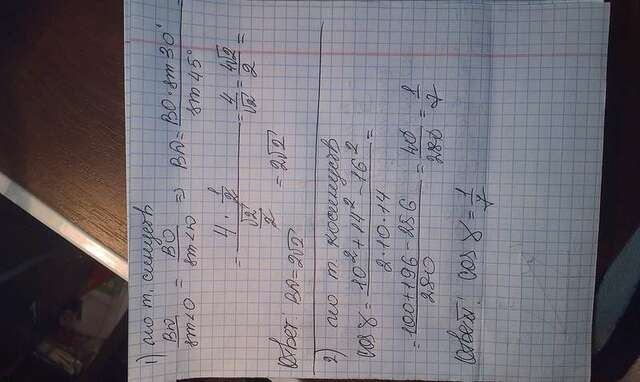 1) по т. синусов
BN / sin∠O = BO / sin∠N ⇒ BN = BO · sin 30° / sin 45° =
= 4 · 1/2 / √2/2 = 4/√2 = 4√2/2 =
= 2√2
Ответ: BN = 2√2
2) по т. косинусов
cos γ = 10² + 14² - 16² / 2 · 10 · 14 =
= 100 + 196 - 256 / 280 = 40/280 = 1/7
Ответ: cos γ = 1/7